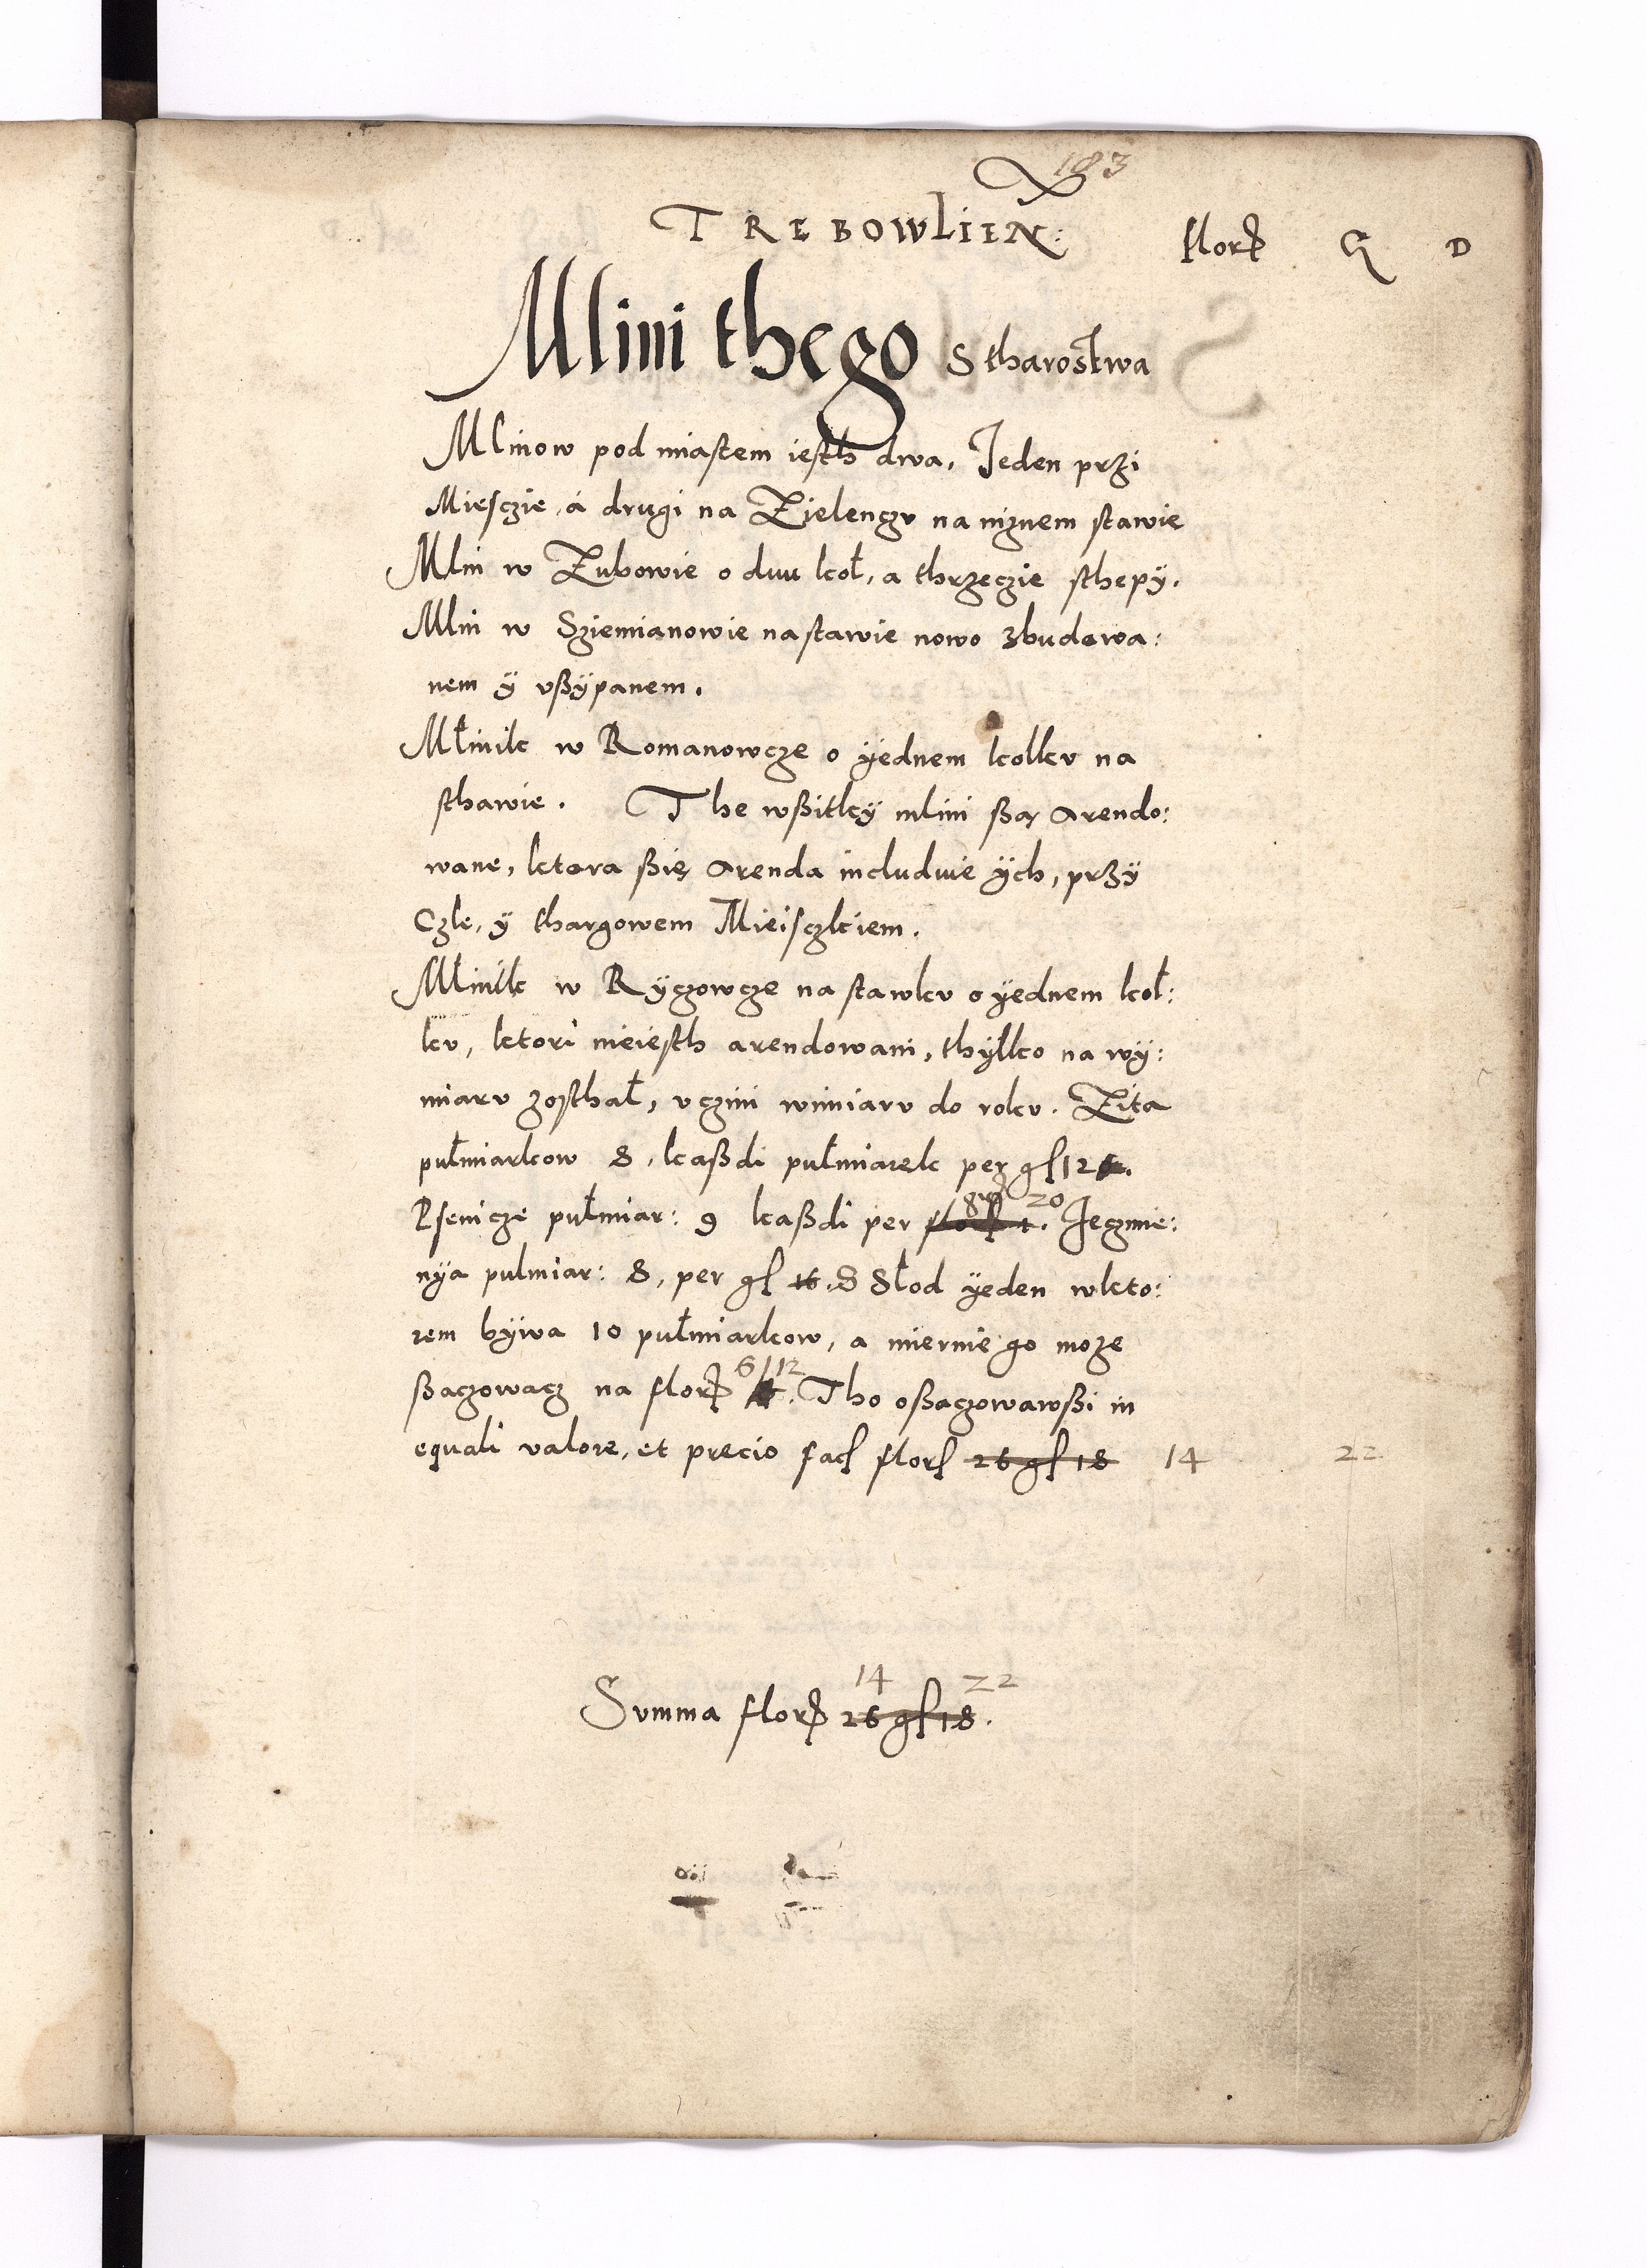 183
TREBOWLIEN:
flor G D
Mlini thego Stharostwa
Mlinow pod miastem iesth dwa, Jeden przi
Miesczie, á drugi na Zielenczv na niznem stawie
Mlin w Zubowie o dwu koł, a thrzeczie sthepÿ.
Mlin w Sziemianowie na stawie nowo zbudowa:
nem ÿ vßÿpanem.
Młinik w Romanowcze o ÿednem kolkv na
sthawie. The wßitkÿ mlini ßą Arendo:
wane, ktora ßię Arenda includuie ÿch, przÿ
Czle, ÿ thargowem Mieisczkiem.
Młinik w Rÿczowcze na stawkv o ÿednem koł:
kv, ktori nieiesth arendowani, thÿlko na wÿ:
miarv zosthał, vczini wimiarv do rokv. Zita
pułmiarkow 8, kaßdi pułmiarek per gſ 12
Psenicze pułmiar: 9 kaßdi per flor 1. gr 20 Jeczmie:
nÿa pulmiar: 8, per gſ 16. 8 Słod ÿeden wkto:
rem bÿwa 10 pułmiarkow, a miernie go moze
ßaczowacz na flor 6/12. Tho oßaczowawßi in
equali valore, et precio facſ florſ 26 gſ 18 14 22
14 22
Summa flor 26 gſ 18.